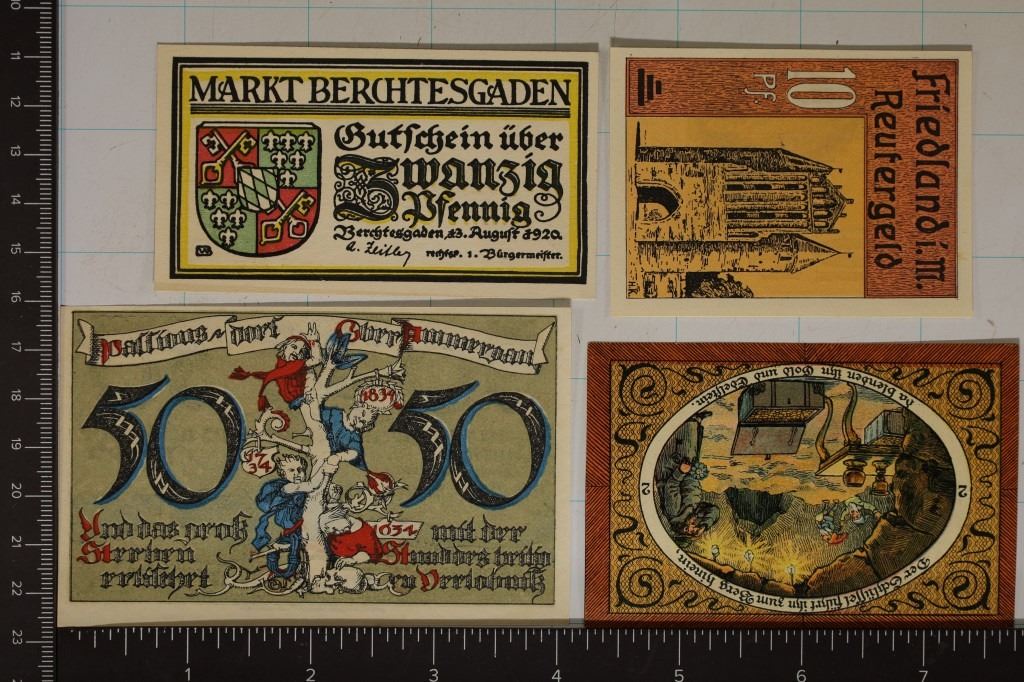 MARKT BERCHTESGADEN
Gutschein über
Zwanzig
Pfennig
Berchtesgaden, 23. August 1920.
A. Zeitler
rechtsk. 1. Bürgermeister.
Friedland i. M.
Reutergeld
10
Pf.
Passions-dorf Ober Ammergau
50 50
1834
1734
1634
Und das groß
Sterben
erlischet
mit der
Stund des heilig
en Verlöbniß
da blenden ihn Gold und Edelstein.
2 2
Der Schlüssel führt ihn zum Berg hinein,
10
11
12
13
14
15
16
17
18
19
20
21
22
23
1 2 3 4 5 6 7